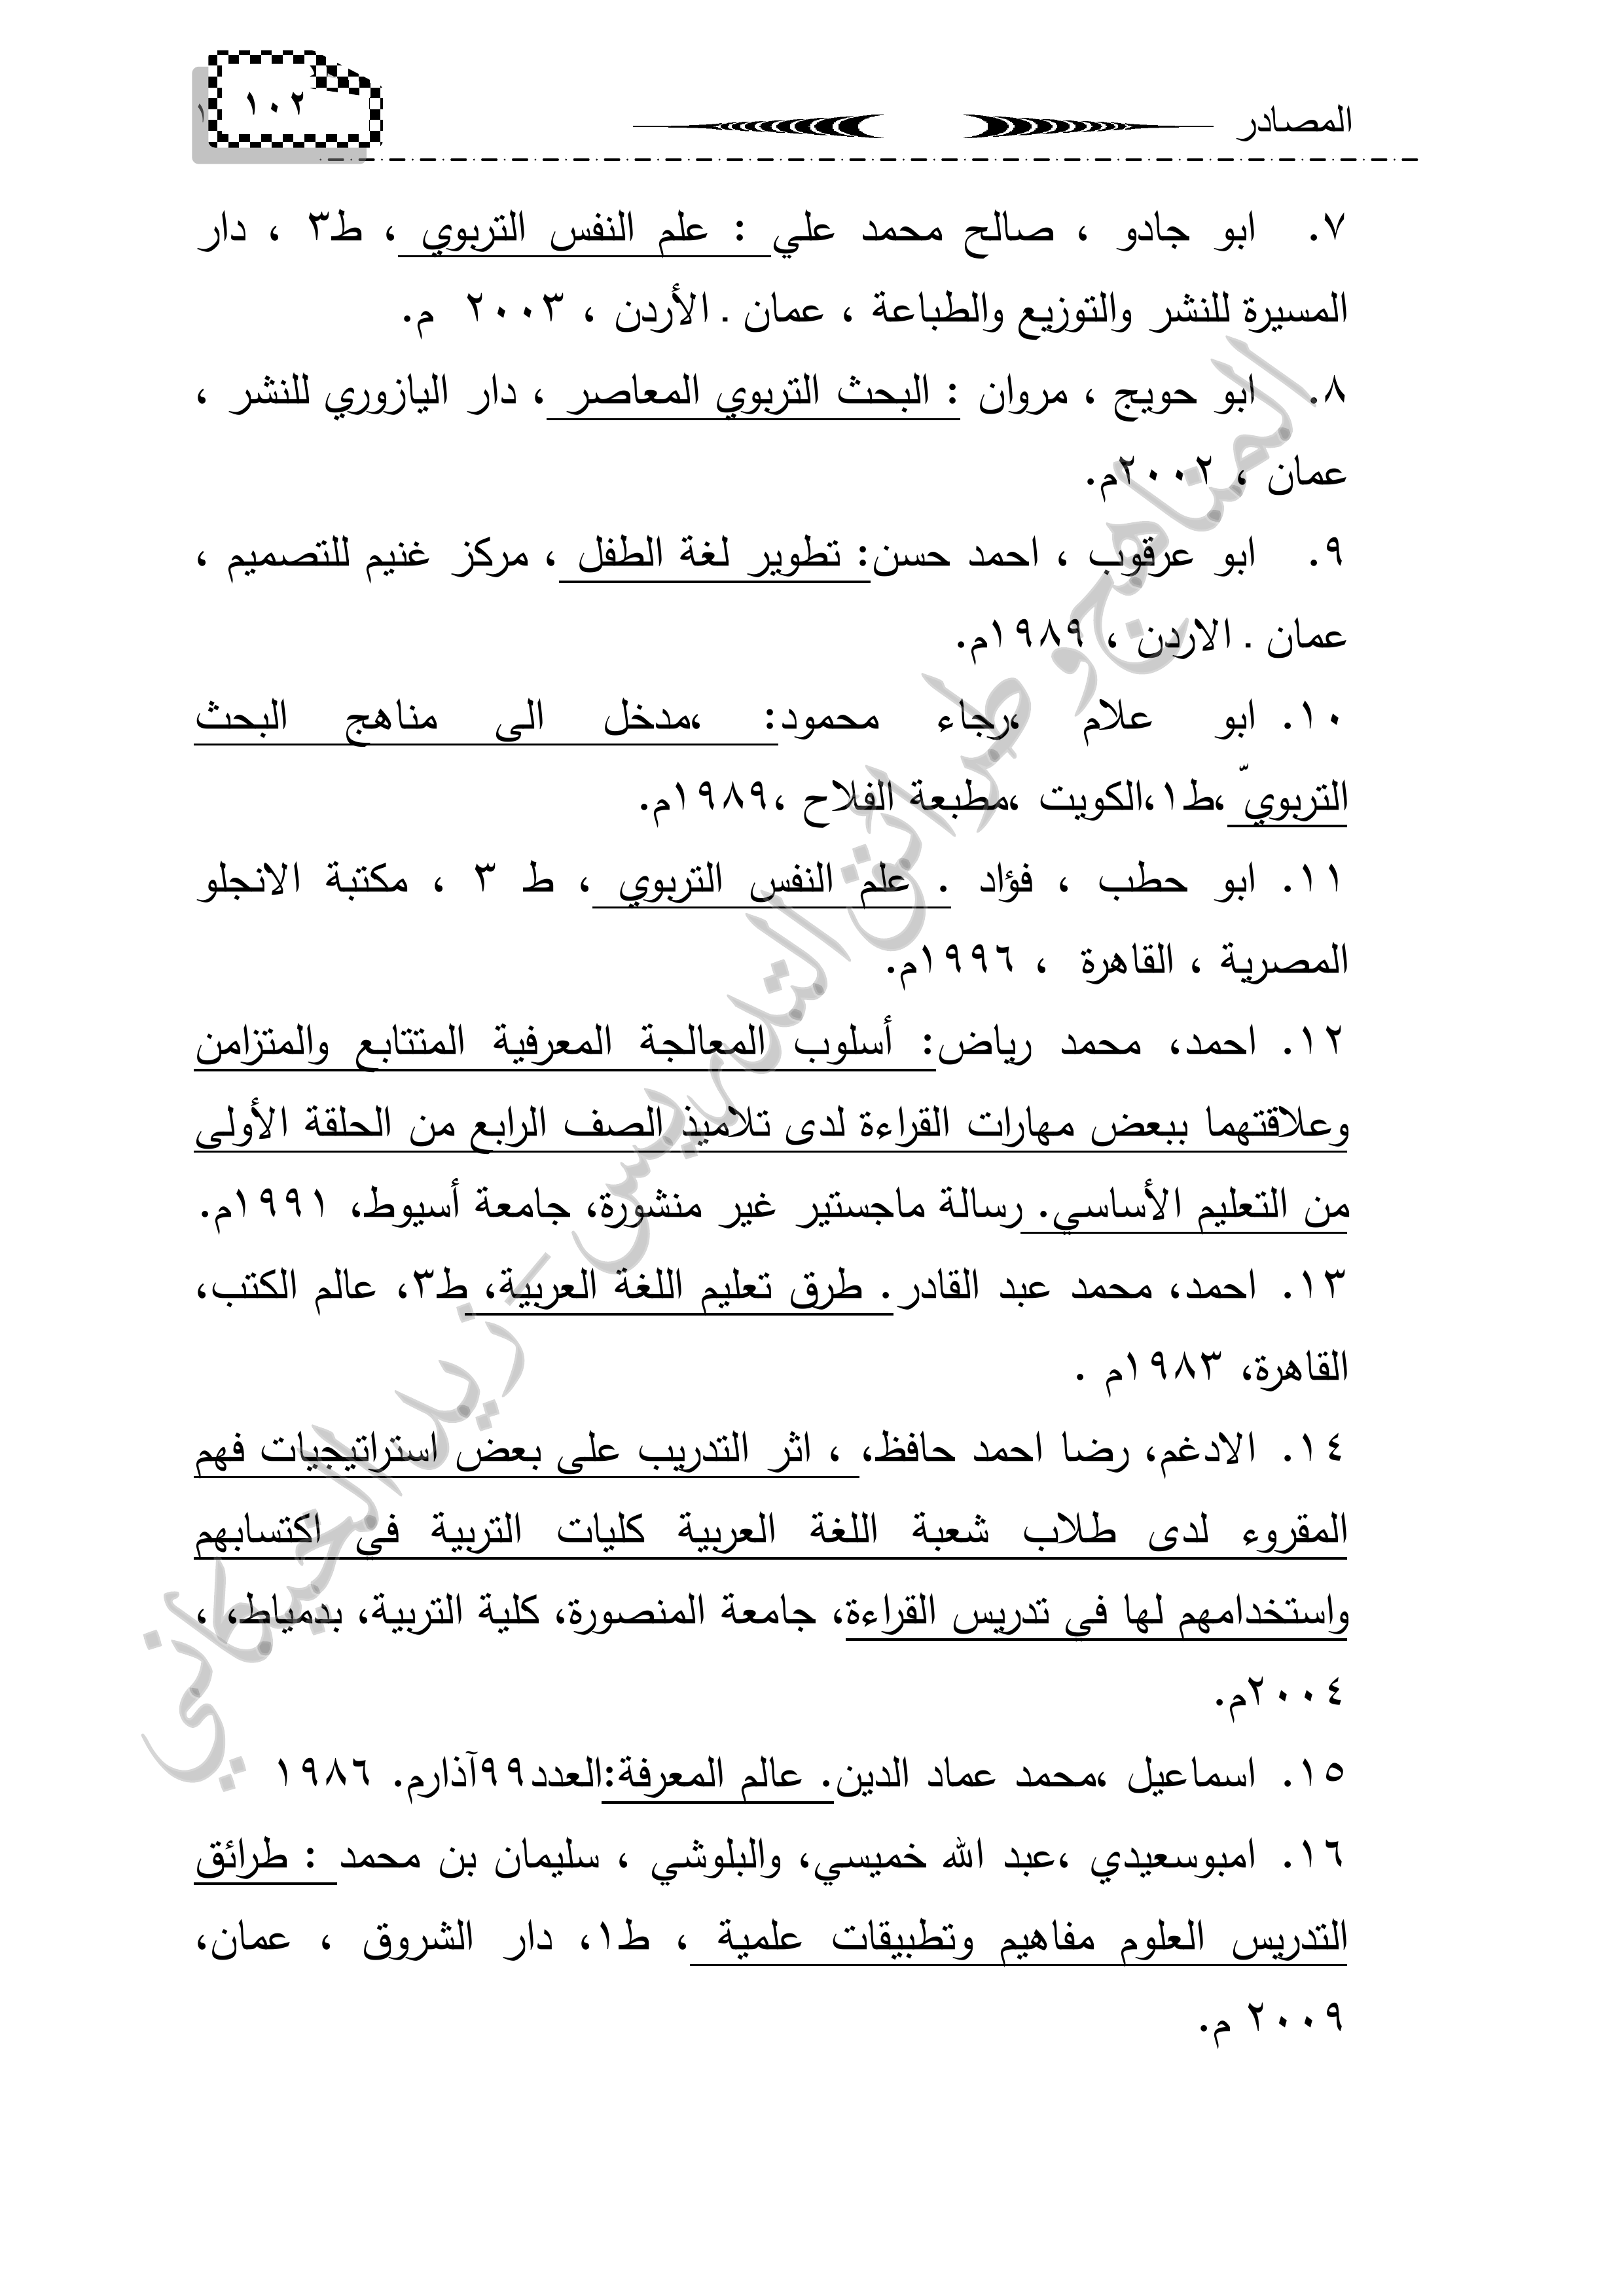 المصادر
١٠٢
٧. ابو جادو ، صالح محمد علي : علم النفس التربوي ، ط٣ ، دار
المسيرة للنشر والتوزيع والطباعة ، عمان ـ الأردن ، ٢٠٠٣ م.
٨. ابو حويج ، مروان : البحث التربوي المعاصر ، دار اليازوري للنشر ،
عمان ، ٢٠٠٢م.
٩. ابو عرقوب ، احمد حسن: تطوير لغة الطفل ، مركز غنيم للتصميم ،
عمان ـ الاردن ، ١٩٨٩م.
١٠. ابو علام ،رجاء محمود: ،مدخل الى مناهج البحث
التربويّ ،ط١،الكويت ،مطبعة الفلاح ،١٩٨٩م.
١١. ابو حطب ، فؤاد . علم النفس التربوي ، ط ٣ ، مكتبة الانجلو
المصرية ، القاهرة ، ١٩٩٦م.
١٢. احمد، محمد رياض: أسلوب المعالجة المعرفية المتتابع والمتزامن
وعلاقتهما ببعض مهارات القراءة لدى تلاميذ الصف الرابع من الحلقة الأولى
من التعليم الأساسي. رسالة ماجستير غير منشورة، جامعة أسيوط، ١٩٩١م.
١٣. احمد، محمد عبد القادر. طرق تعليم اللغة العربية، ط٣، عالم الكتب،
القاهرة، ١٩٨٣م .
١٤. الادغم، رضا احمد حافظ، ، اثر التدريب على بعض استراتيجيات فهم
المقروء لدى طلاب شعبة اللغة العربية كليات التربية في اكتسابهم
واستخدامهم لها في تدريس القراءة، جامعة المنصورة، كلية التربية، بدمياط، ،
٢٠٠٤م.
١٥. اسماعيل ،محمد عماد الدين. عالم المعرفة:العدد٩٩آذارم. ١٩٨٦
١٦. امبوسعيدي ،عبد الله خميسي، والبلوشي ، سليمان بن محمد : طرائق
التدريس العلوم مفاهيم وتطبيقات علمية ، ط١، دار الشروق ، عمان،
٢٠٠٩ م.
المناهج و طرائق التدريس - زيد الخيكاني